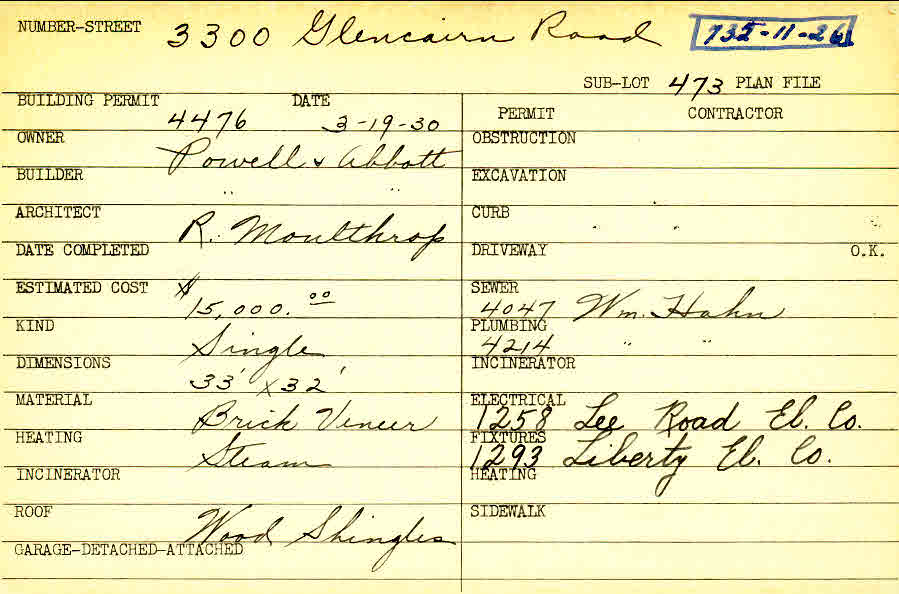 NUMBER-STREET 3300 Glencairn Road 735-11-26
SUB-LOT 473 PLAN FILE
BUILDING PERMIT DATE
4476 3-19-30
PERMIT CONTRACTOR
OWNER Powell & Abbott
OBSTRUCTION
BUILDER " "
EXCAVATION
ARCHITECT R. Moulthrop
CURB
DATE COMPLETED
DRIVEWAY O.K.
ESTIMATED COST $15,000.00
SEWER
4047 Wm. Hahn
KIND Single
PLUMBING
4214 " "
DIMENSIONS 33' x 32'
INCINERATOR
MATERIAL Brick Veneer
ELECTRICAL
1258 Lee Road El. Co.
HEATING Steam
FIXTURES
1293 Liberty El. Co.
INCINERATOR
HEATING
ROOF Wood Shingles
SIDEWALK
GARAGE-DETACHED-ATTACHED